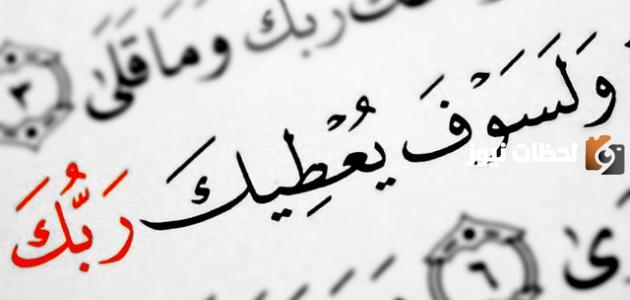 ربك وما قلى ٣
وَلَسَوْفَ يُعْطِيكَ رَبُّكَ
لحظات نيوز
٦